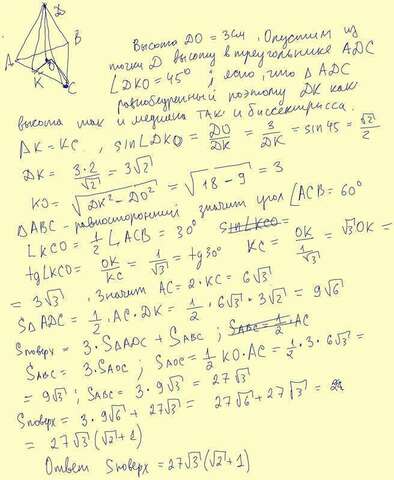 D
B
A
O
K
C
Высота DO = 3см. Опустим из
точки D высоту в треугольнике ADC
∠DKO = 45° ; ясно, что △ADC
равнобедренный поэтому DK как
высота так и медиана так и биссектрисса.
AK = KC , sin∠DKO = DO/DK = 3/DK = sin45 = √2/2
DK = 3·2/√2 = 3√2
KO = √(DK² − DO²) = √(18 − 9) = 3
△ABC - равносторонний значит угол ∠ACB = 60°
∠KCO = 1/2 ∠ACB = 30° sin∠KCO =
tg∠KCO = OK/KC = 1/√3 = tg30° KC = OK/(1/√3) = √3OK =
= 3√3 , Значит AC = 2·KC = 6√3
S△ADC = 1/2·AC·DK = 1/2·6√3·3√2 = 9√6
Sповерх = 3·S△ADC + SABC ; SABC = 1/2·AC
SABC = 3·SAOC ; SAOC = 1/2 KO·AC = 1/2·3·6√3 =
= 9√3 ; SABC = 3·9√3 = 27√3
Sповерх = 3·9√6 + 27√3 = 27√6 + 27√3 =
= 27√3(√2+1)
Ответ Sповерх = 27√3(√2+1)